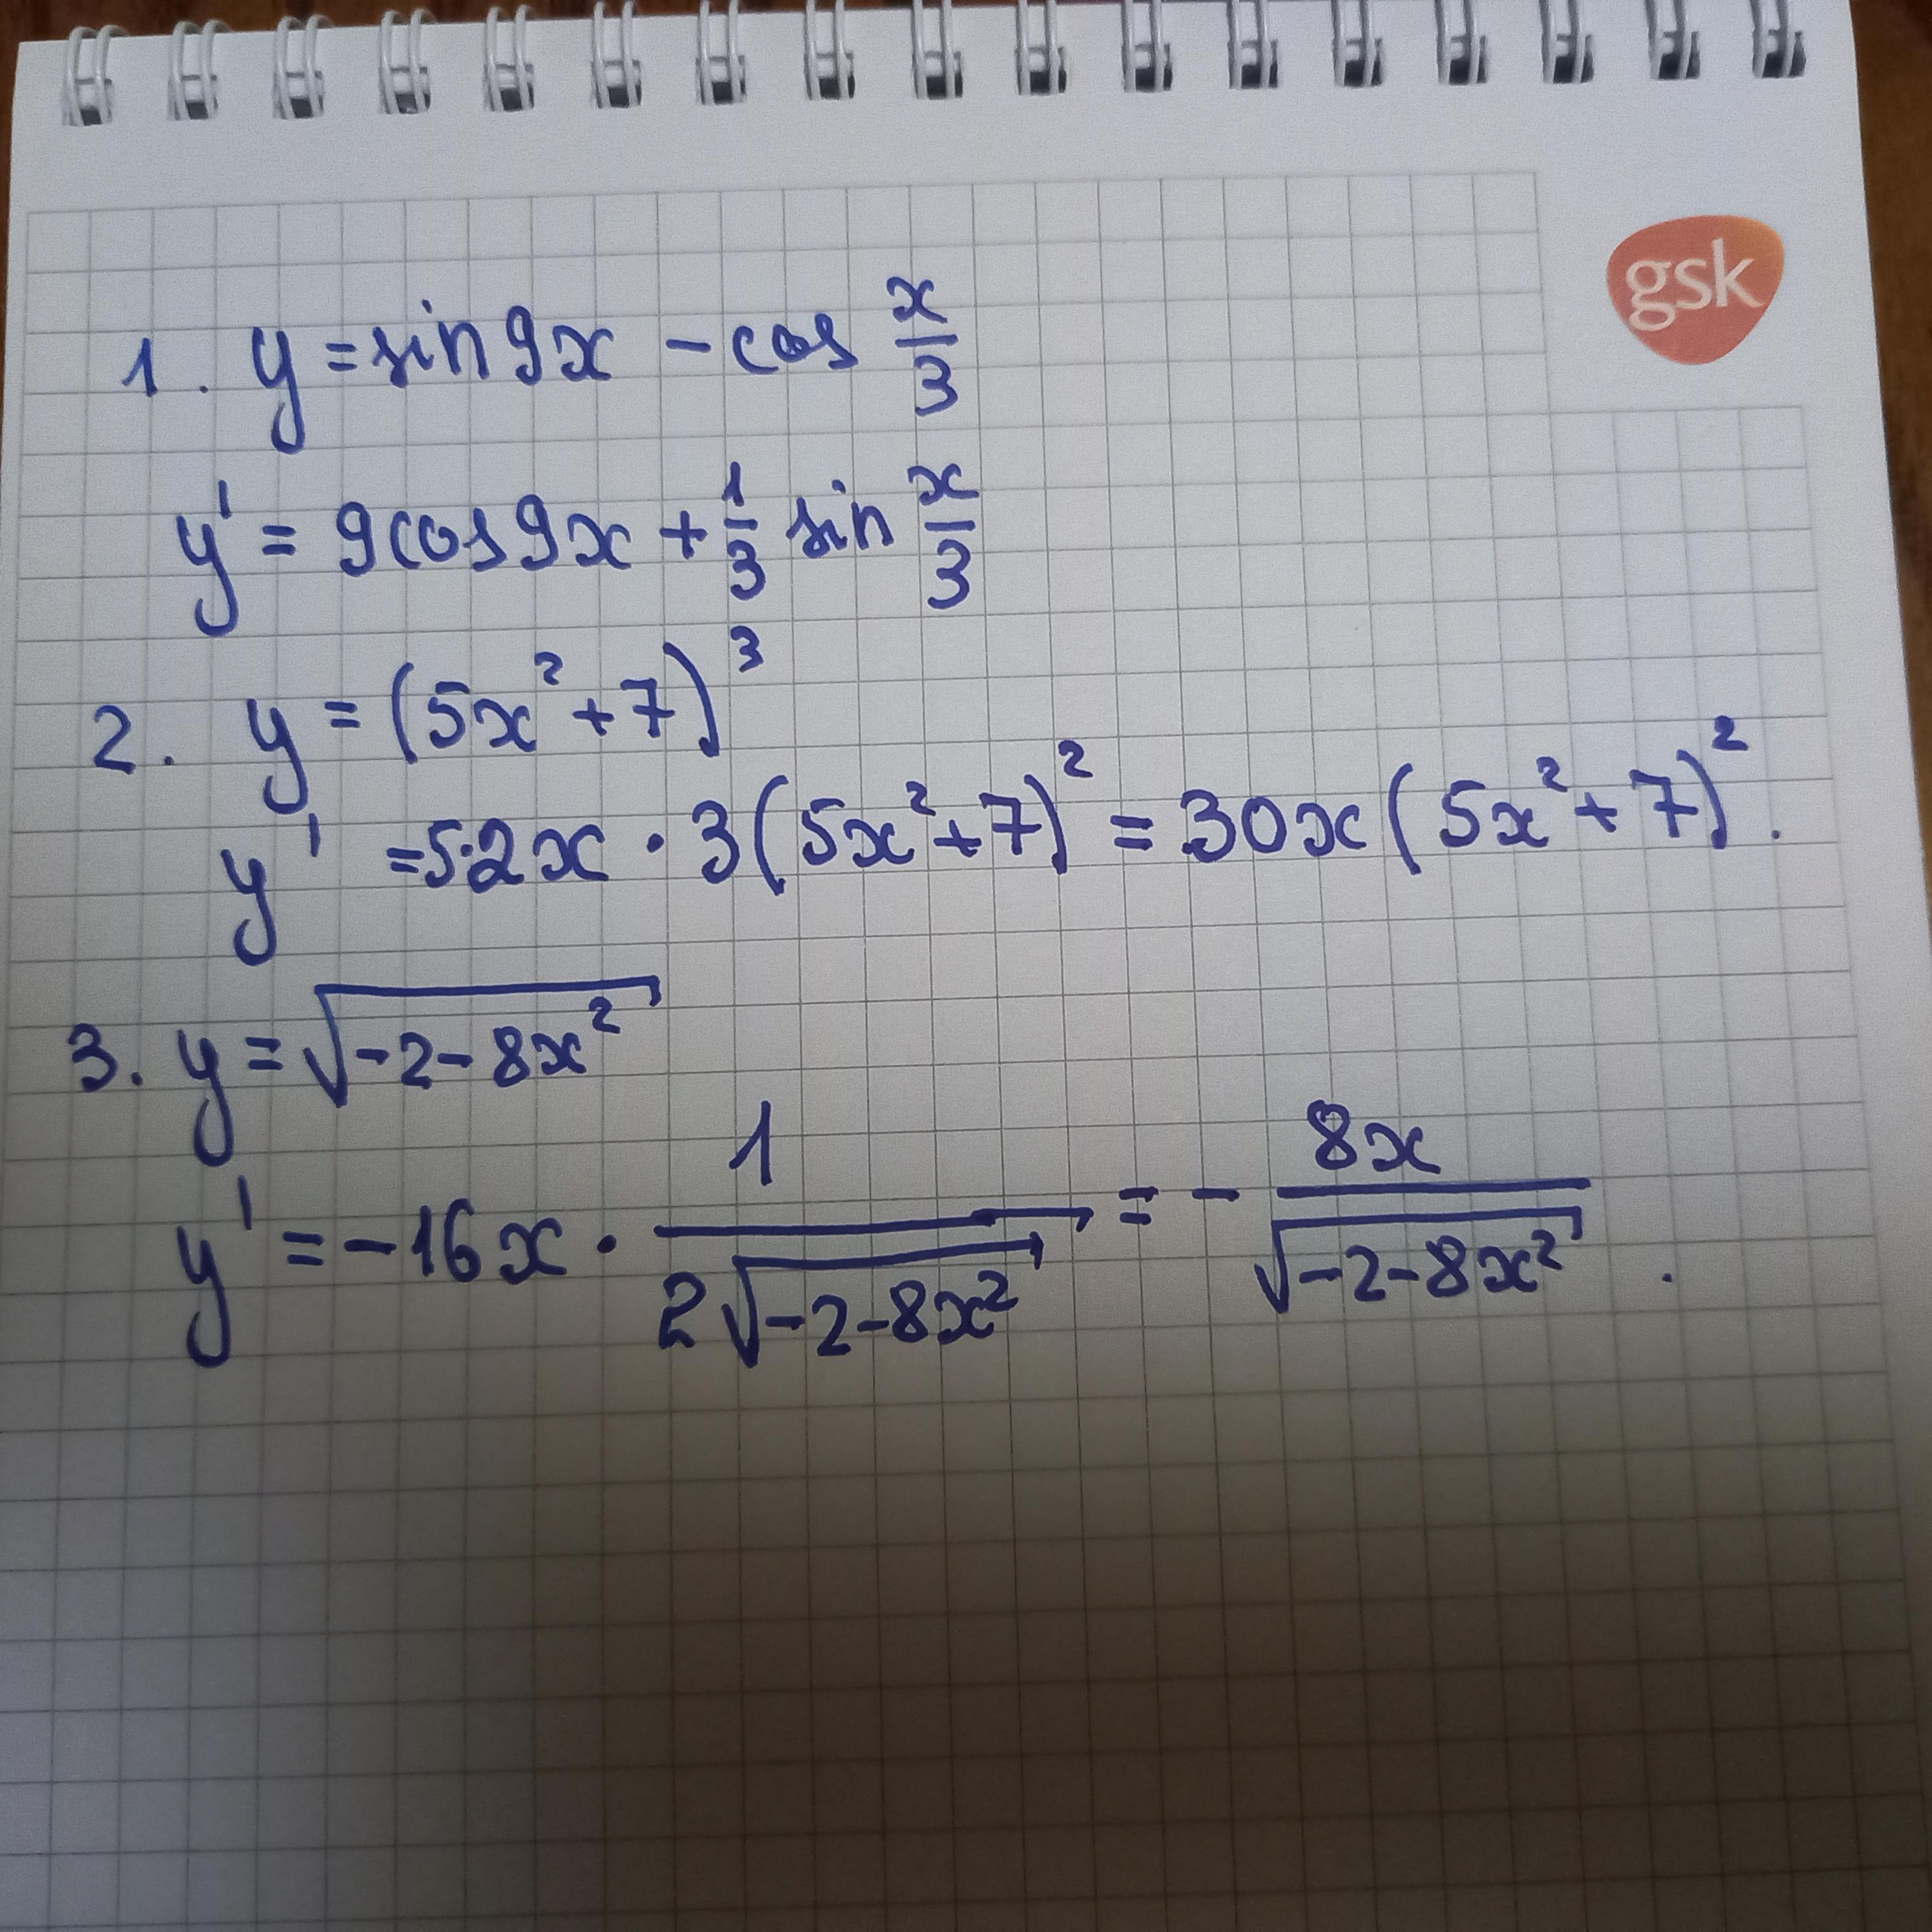 gsk
1. y = sin 9x - cos x/3
y' = 9cos 9x + 1/3 sin x/3
2. y = (5x² + 7)³
y' = 5·2x · 3(5x² + 7)² = 30x(5x² + 7)².
3. y = √(-2 - 8x²)
y' = -16x · 1/(2√(-2 - 8x²)) = - 8x/√(-2 - 8x²).